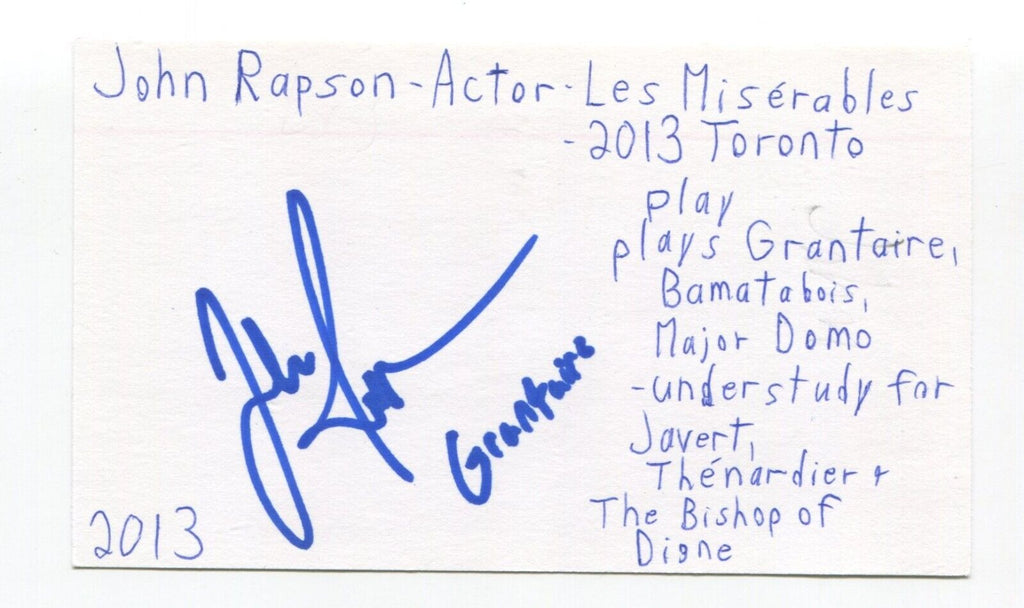 John Rapson - Actor - Les Misérables
- 2013 Toronto
play
plays Grantaire,
Bamatabois,
Major Domo
- understudy for
Javert,
Thénardier &
The Bishop of
Digne
John Rapson
Grantaire
2013